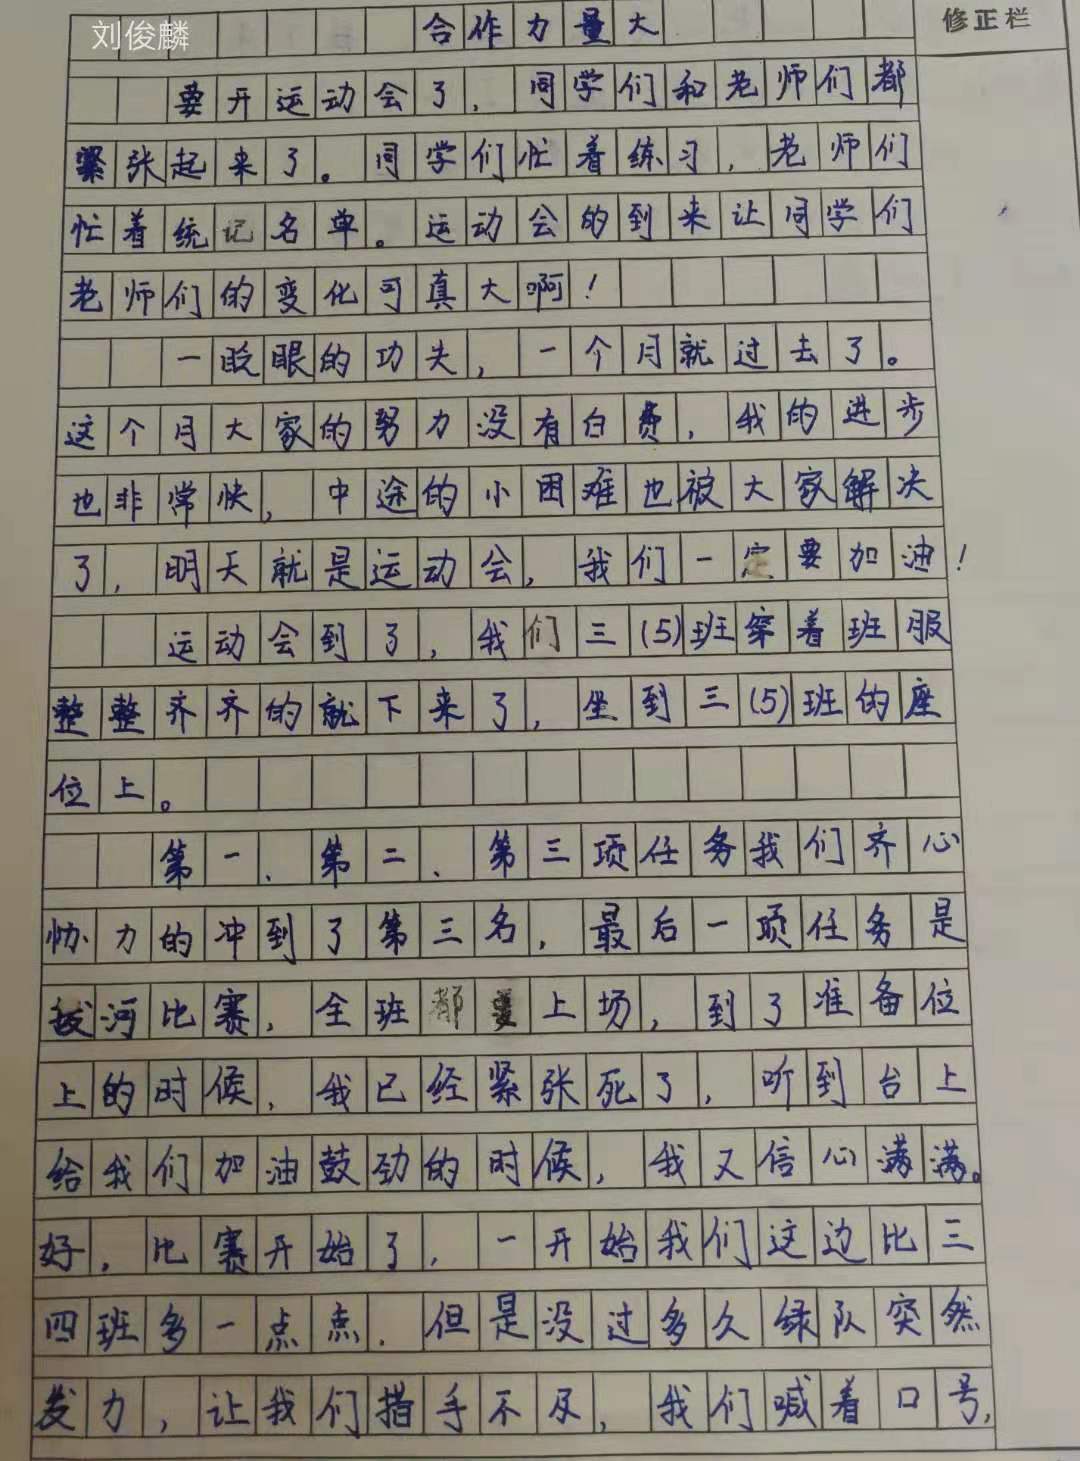 刘俊麟
合作力量大
修正栏
要开运动会了，同学们和老师们都
紧张起来了。同学们忙着练习，老师们
忙着统记名单。运动会的到来让同学们
老师们的变化可真大啊！
一眨眼的功失，一个月就过去了。
这个月大家的努力没有白费，我的进步
也非常快，中途的小困难也被大家解决
了，明天就是运动会，我们一定要加油！
运动会到了，我们三(5)班穿着班服
整整齐齐的就下来了，坐到三(5)班的座
位上。
第一、第二、第三项任务我们齐心
协力的冲到了第三名，最后一项任务是
拔河比赛，全班都要上场，到了准备位
上的时候，我已经紧张死了，听到台上
给我们加油鼓劲的时候，我又信心满满。
好，比赛开始了，一开始我们这边比三
四班多一点点，但是没过多久绿队突然
发力，让我们措手不及，我们喊着口号，